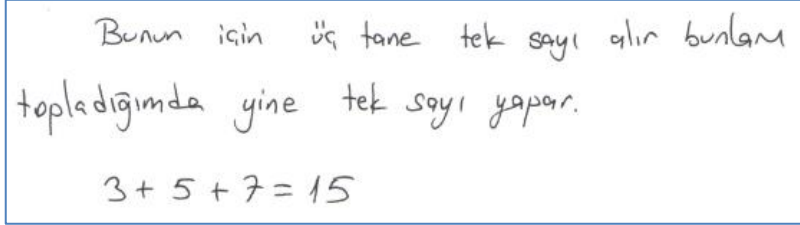 Bunun için üç tane tek sayı alır bunları
topladığımda yine tek sayı yapar.
3 + 5 + 7 = 15